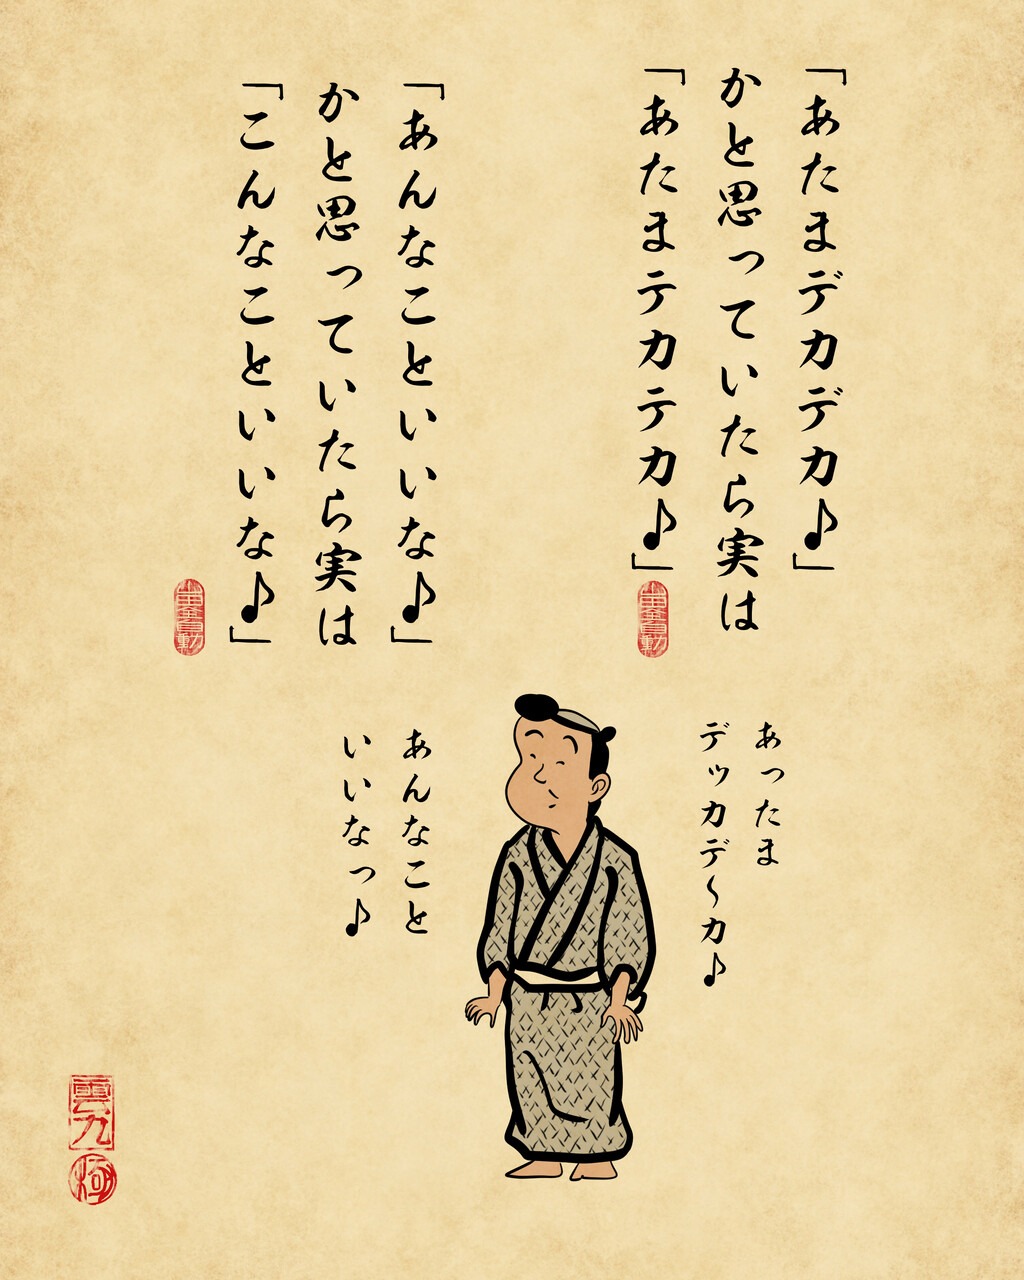 「あたまデカデカ♪」
かと思っていたら実は
「あたまテカテカ♪」
「あんなこといいな♪」
かと思っていたら実は
「こんなこといいな♪」
あったま
デッカデ～カ♪
あんなこと
いいなっ♪